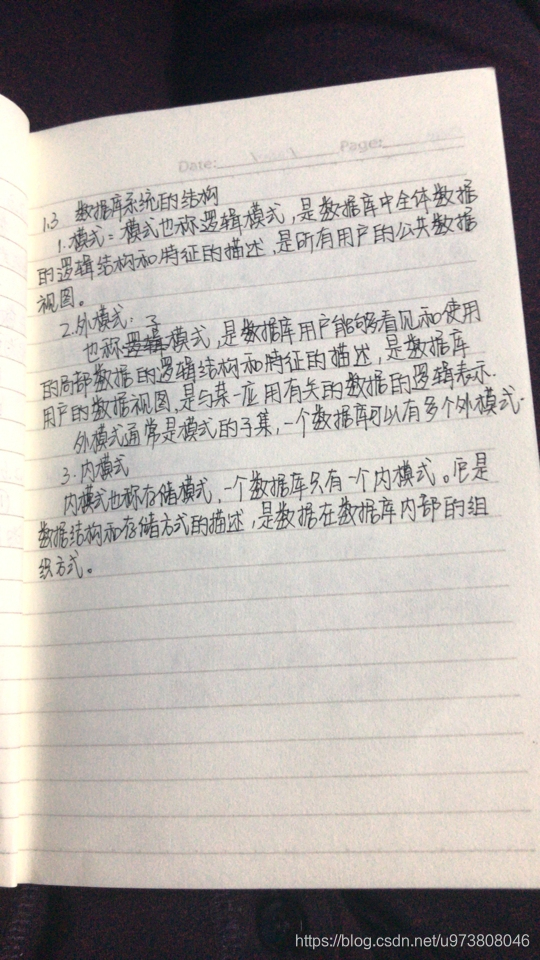 Date: Page:
1.3 数据库系统的结构
1.模式：模式也称逻辑模式，是数据库中全体数据
的逻辑结构和特征的描述，是所有用户的公共数据
视图。
2.外模式：
也称子模式，是数据库用户能够看见和使用
的局部数据的逻辑结构和特征的描述，是数据库
用户的数据视图，是与某一应用有关的数据的逻辑表示.
外模式通常是模式的子集，一个数据库可以有多个外模式.
3.内模式
内模式也称存储模式，一个数据库只有一个内模式。它是
数据结构和存储方式的描述，是数据在数据库内部的组
织方式。
https://blog.csdn.net/u973808046